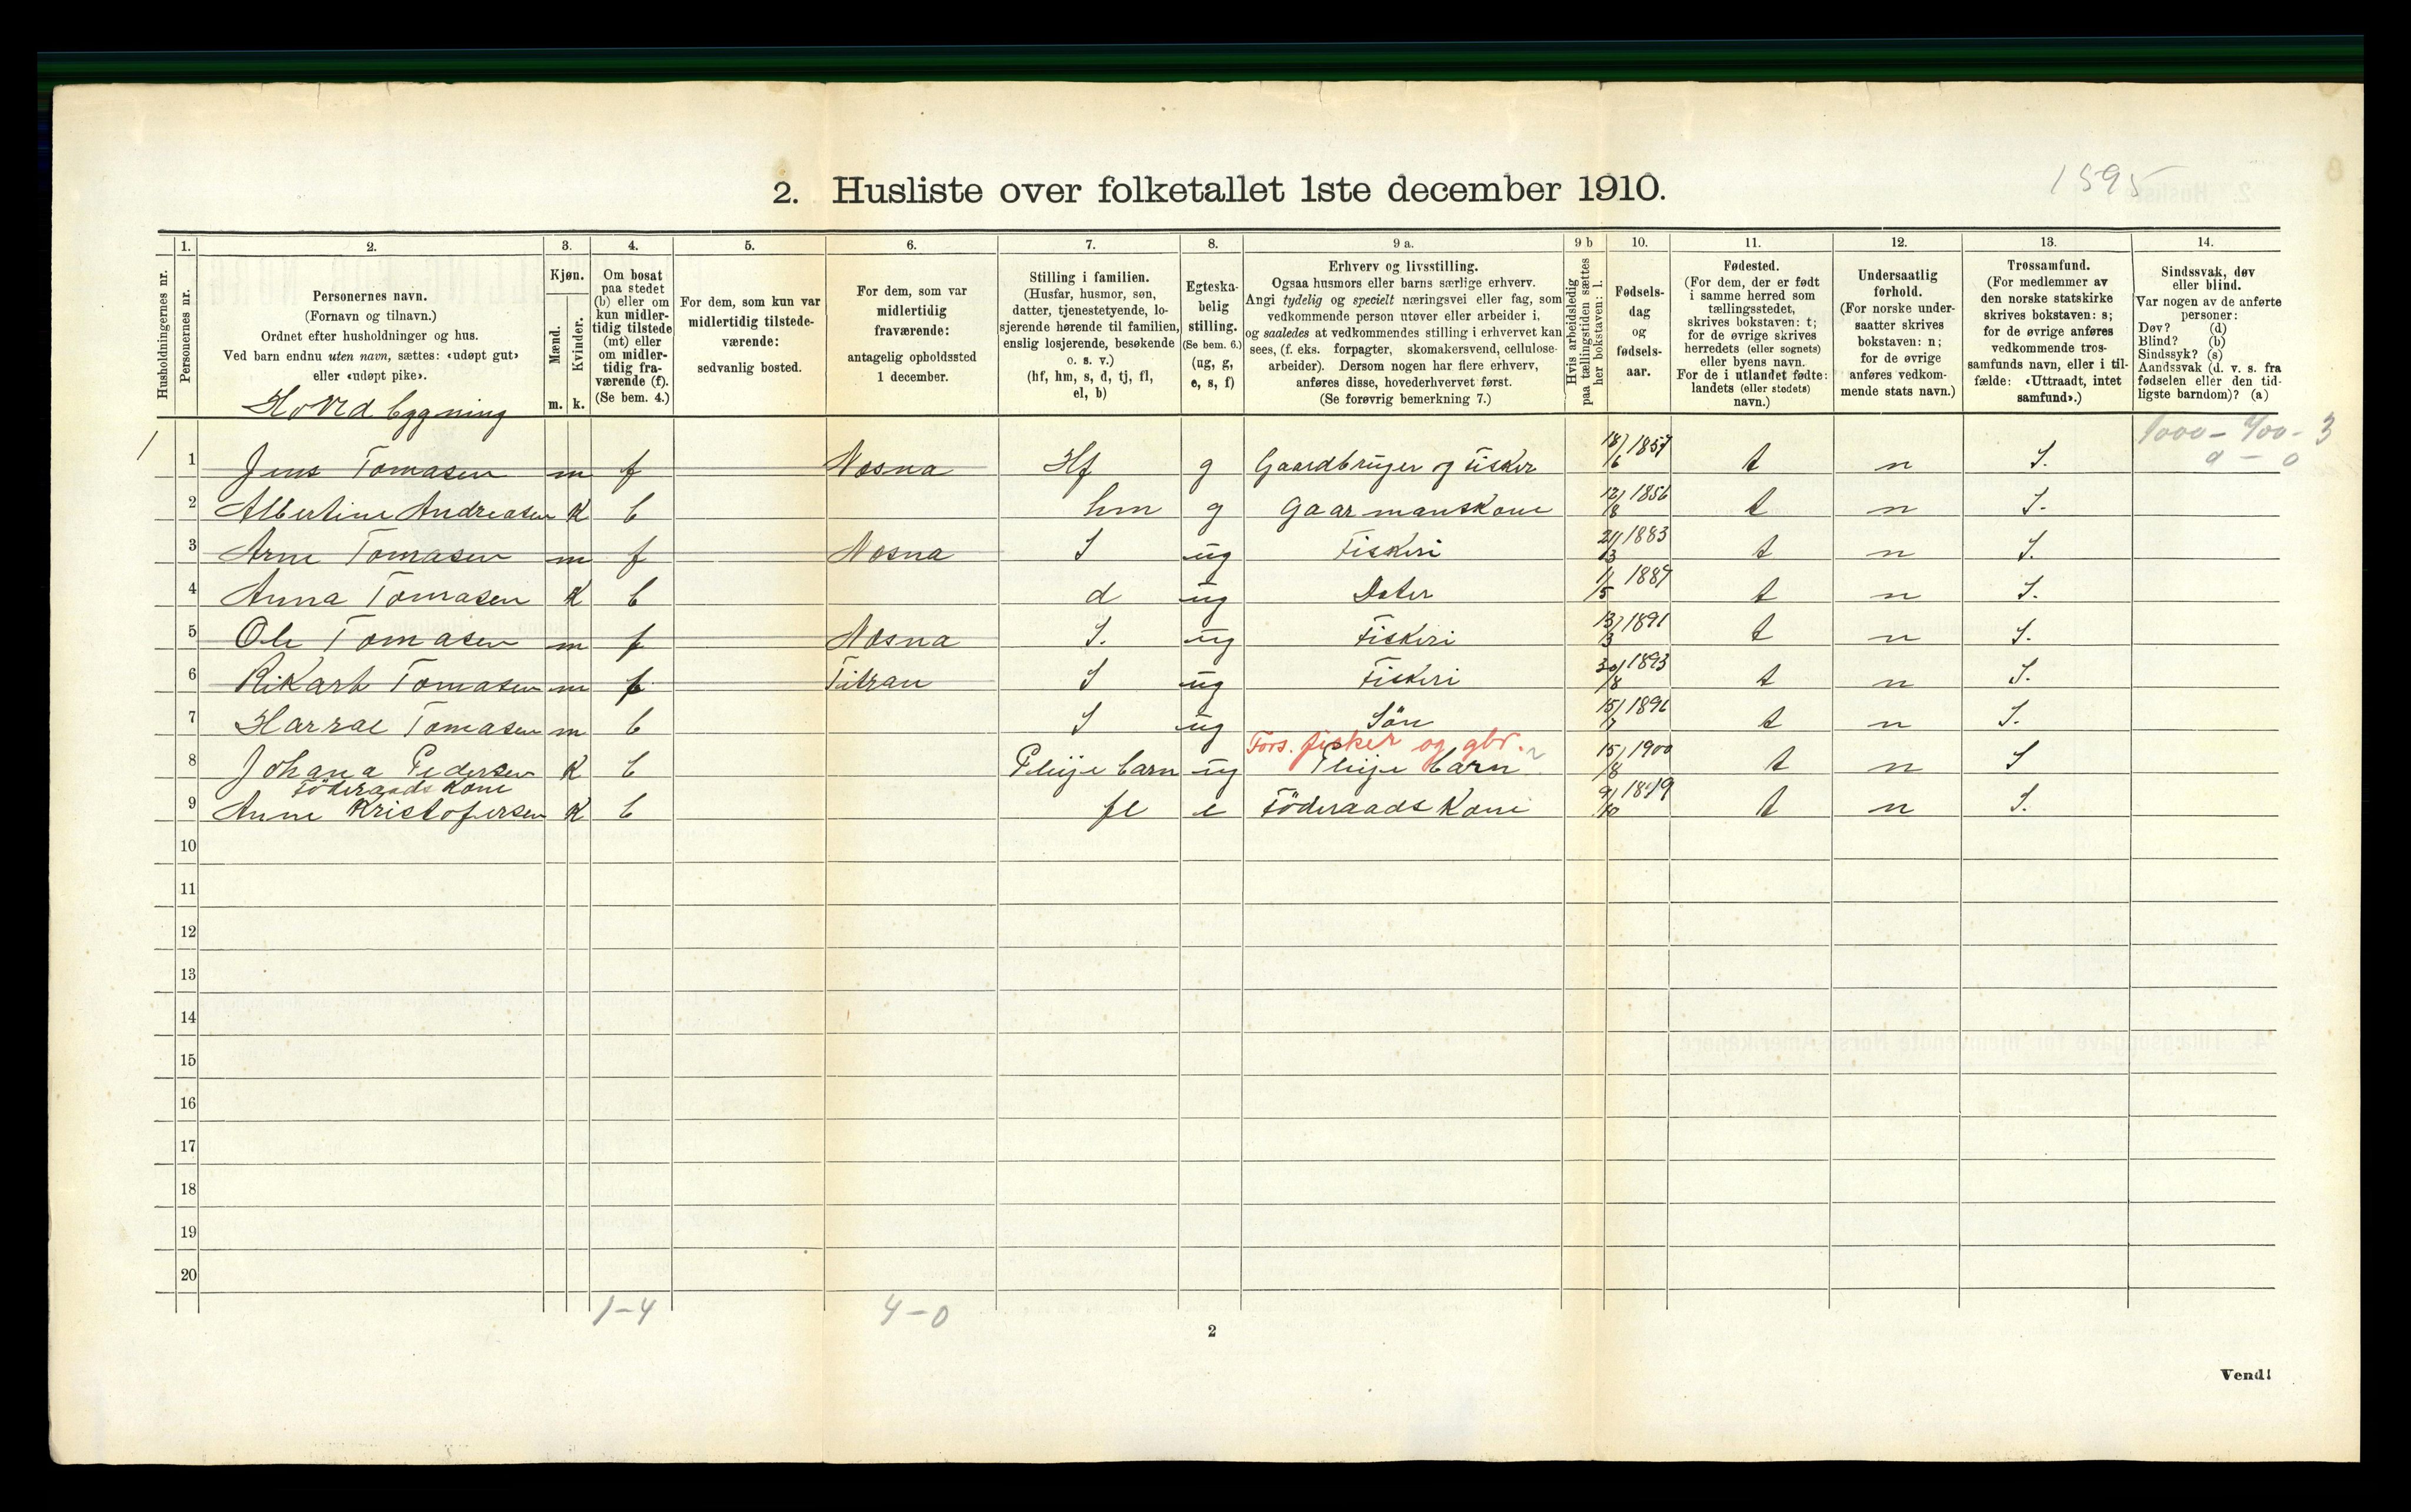 1595
2. Husliste over folketallet 1ste december 1910.
Husholdningernes nr.
1. Personernes nr.
2. Personernes navn. (Fornavn og tilnavn.) Ordnet efter husholdninger og hus. Ved barn endnu uten navn, sættes: «udøpt gut» eller «udøpt pike».
Hovedbygning
3. Kjøn. Mænd. m. Kvinder. k.
4. Om bosat paa stedet (b) eller om kun midlertidig tilstede (mt) eller om midlertidig fraværende (f). (Se bem. 4.)
5. For dem, som kun var midlertidig tilstedeværende: sedvanlig bosted.
6. For dem, som var midlertidig fraværende: antagelig opholdssted 1 december.
7. Stilling i familien. (Husfar, husmor, søn, datter, tjenestetyende, losjerende hørende til familien, enslig losjerende, besøkende o. s. v.) (hf, hm, s, d, tj, fl, el, b)
8. Egteskabelig stilling. (Se bem. 6.) (ug, g, e, s, f)
9 a. Erhverv og livsstilling. Ogsaa husmors eller barns særlige erhverv. Angi tydelig og specielt næringsvei eller fag, som vedkommende person utøver eller arbeider i, og saaledes at vedkommendes stilling i erhvervet kan sees, (f. eks. forpagter, skomakersvend, cellulosearbeider). Dersom nogen har flere erhverv, anføres disse, hovederhvervet først. (Se forøvrig bemerkning 7.)
9 b Hvis arbeidsledig paa tællingstiden sættes her bokstaven: l.
10. Fødselsdag og fødselsaar.
11. Fødested. (For dem, der er født i samme herred som tællingsstedet, skrives bokstaven: t; for de øvrige skrives herredets (eller sognets) eller byens navn. For de i utlandet fødte: landets (eller stedets) navn.)
12. Undersaatlig forhold. (For norske undersaatter skrives bokstaven: n; for de øvrige anføres vedkommende stats navn.)
13. Trossamfund. (For medlemmer av den norske statskirke skrives bokstaven: s; for de øvrige anføres vedkommende trossamfunds navn, eller i tilfælde: «Uttraadt, intet samfund».)
14. Sindssvak, døv eller blind. Var nogen av de anførte personer: Døv? (d) Blind? (b) Sindssyk? (s) Aandssvak (d. v. s. fra fødselen eller den tidligste barndom)? (a)
1000 - 400 - 3
0 - 0
1 1 Jens Tomasen m f Nosna Hf g Gaardbruger og Fisker 18/6 1857 t n S.
2 Albertine Andreasen K b hm g Gaarmanskone 12/8 1856 t n S.
3 Arne Tomasen m f Nosna S ug Fiskeri 21/3 1883 t n S.
4 Anna Tomasen K b d ug Dater 11/5 1889 t n S.
5 Ole Tomasen m f Nosna S. ug Fiskeri 13/3 1891 t n S.
6 Rikart Tomasen m f Titran S ug Fiskeri 30/8 1893 t n S.
7 Harral Tomasen m b S ug Sön 15/7 1896 t n S.
Fors. fisker og gbr.
8 Johana Pedersen K b Pleije barn ug Pleije barn 15/8 1900 t n S
Föderaads Kone
9 Anne Kristofersen K b fl e Föderaads Kone 9/10 1819 t n S.
10
11
12
13
14
15
16
17
18
19
20
1-4 4-0
2
Vend!